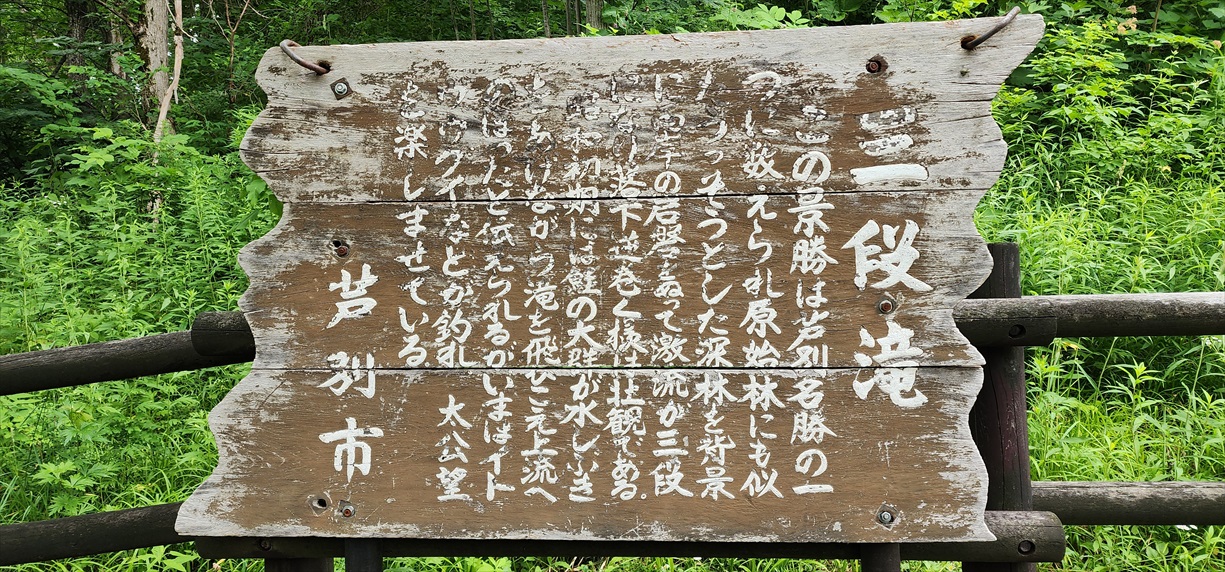 三段滝
この景勝は芦別名勝の一
つに数えられ原始林にも似
たうっそうとした深林を背景
に両岸の岩盤をぬって激流が三段
になり落下逆巻く様は壮観である。
昭和初期には鮭の大群が水しぶき
をあげながら滝を飛びこえ上流へ
のぼったと伝えられるがいまはイト
ウ ウグイなどが釣れ 太公望
を楽しませている
芦別市